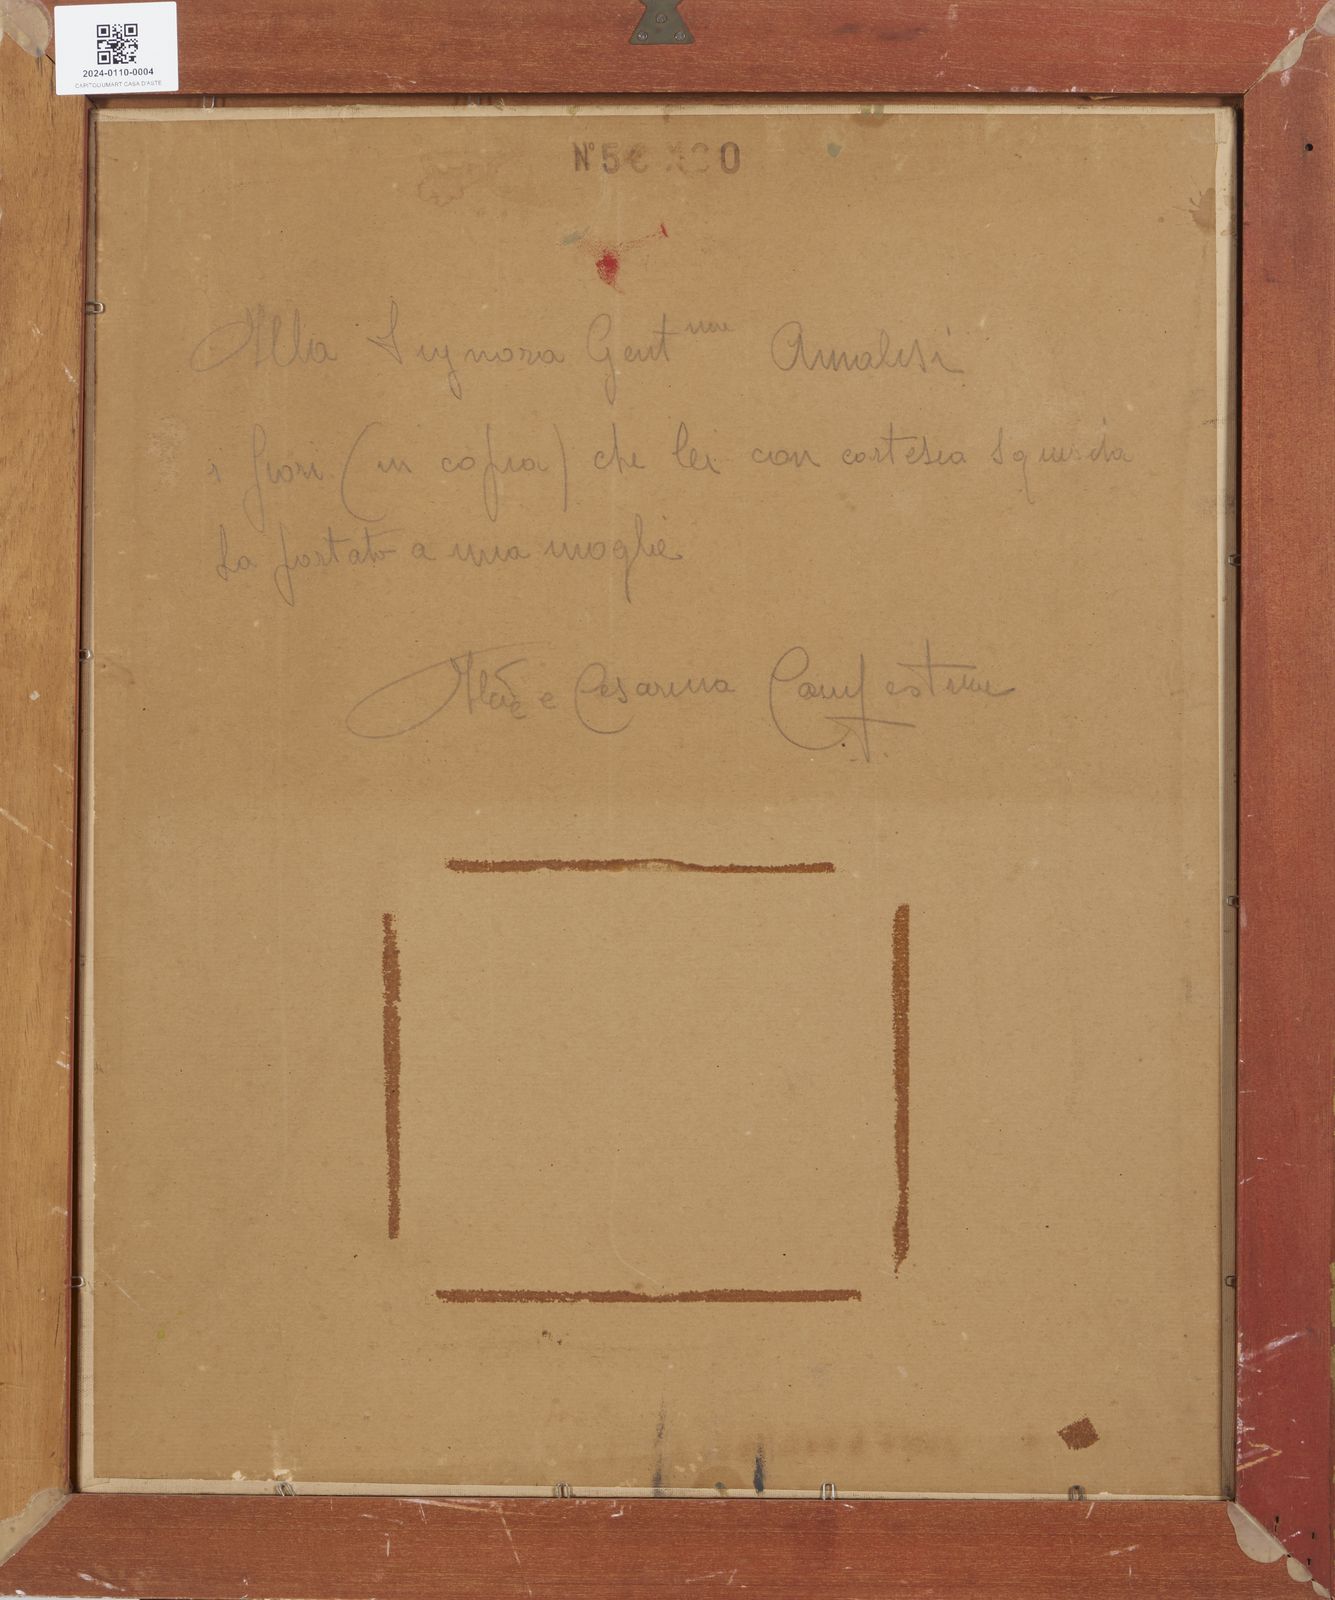 2024-0110-0004
CAPITOLIUMART CASA D'ASTE
N° 5 0
Alla Signora Gent
i fiori (in copia) che lei con cortesia squisita
ha portato a mia moglie
e Cesarina